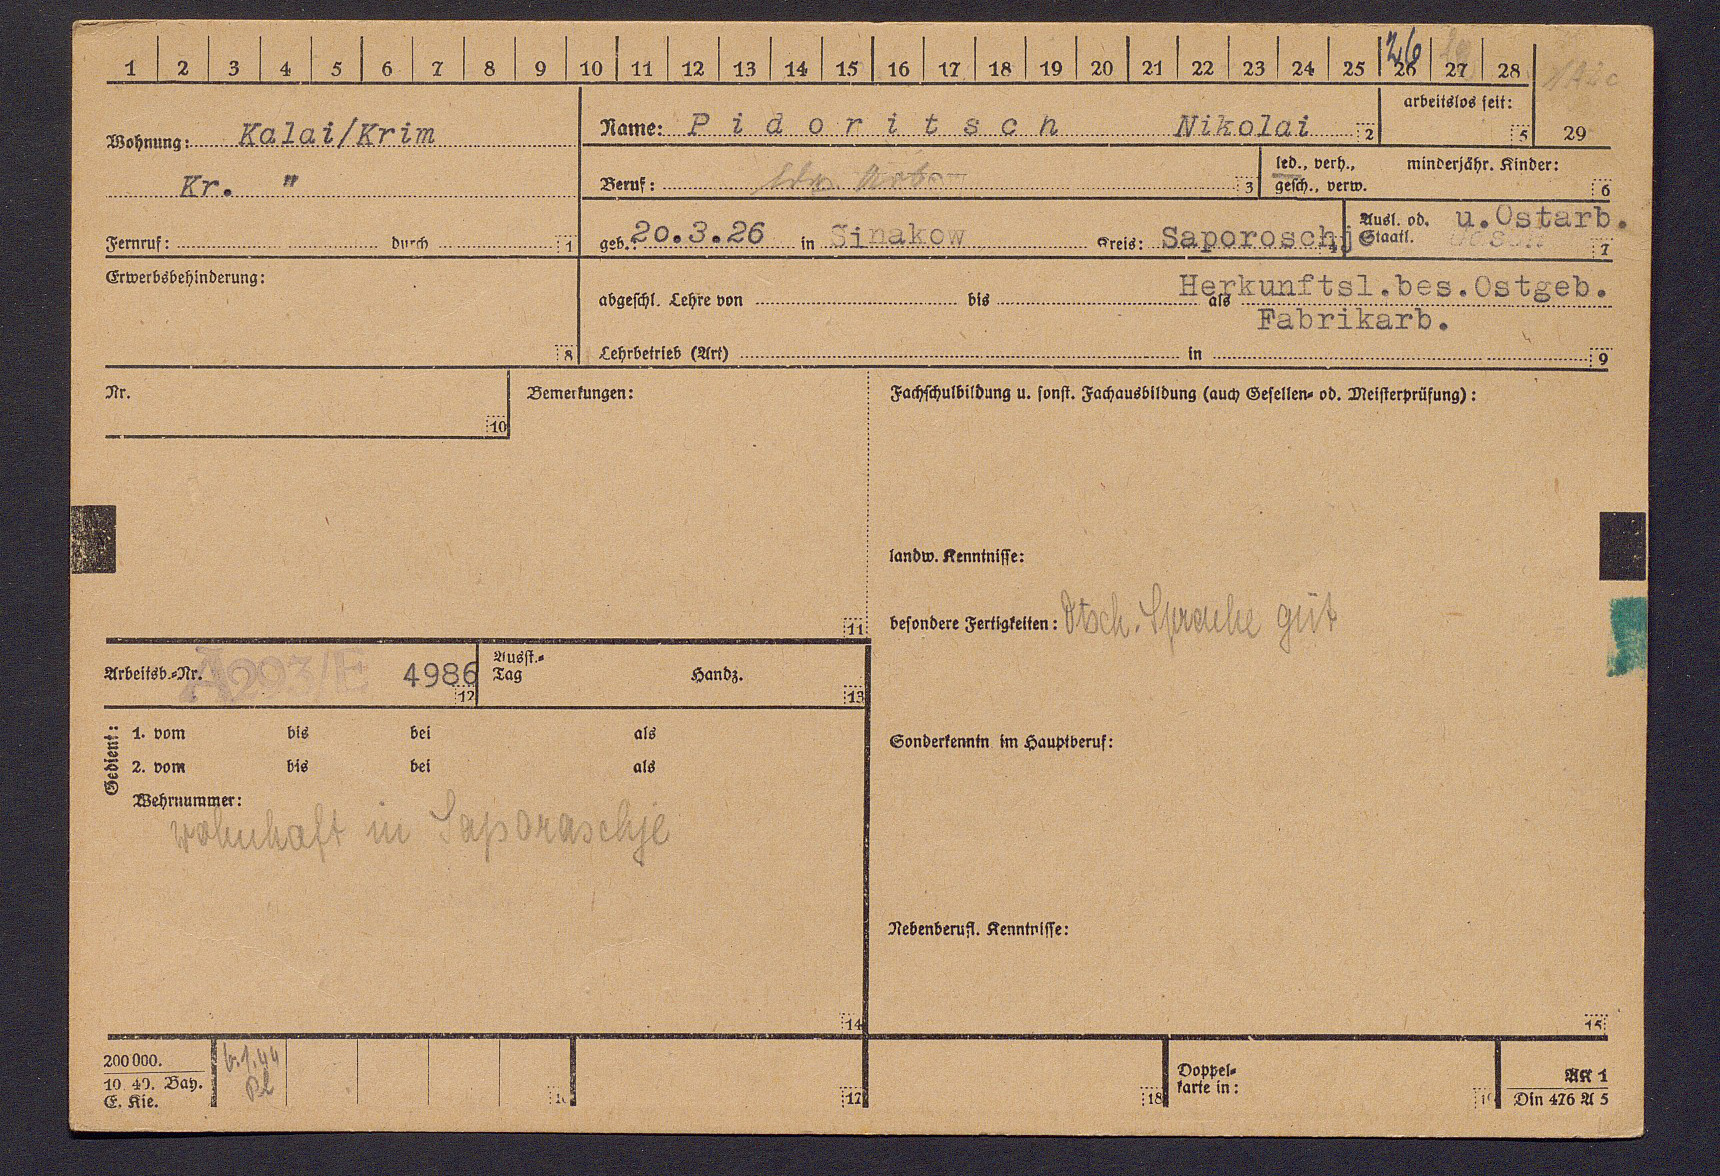 1 2 3 4 5 6 7 8 9 10 11 12 13 14 15 16 17 18 19 20 21 22 23 24 25 26 27 28
26
Wohnung: Kalai/Krim
Kr. "
Fernruf: durch 1
Name: Pidoritsch Nikolai 2
arbeitslos seit:
5 29
Beruf: 3
led., verh.,
gesch., verw.
minderjähr. Kinder:
6
geb.: 20.3.26 in Sinakow Kreis: Saporoschje 4
Ausl. od. u.Ostarb.
Staatl. 7
Erwerbsbehinderung:
8
Herkunftsl.bes.Ostgeb.
abgeschl. Lehre von bis als
Fabrikarb.
Lehrbetrieb (Art) in 9
Nr.
10
Bemerkungen:
11
Fachschulbildung u. sonst. Fachausbildung (auch Gesellen- od. Meisterprüfung):
landw. Kenntnisse:
besondere Fertigkeiten: Dtsch. Sprache gut
Sonderkenntn im Hauptberuf:
Nebenberufl. Kenntnisse:
15
Arbeitsb.-Nr. A293/E 4986 12
Ausst.-
Tag Handz. 13
Gedient:
1. vom bis bei als
2. vom bis bei als
Wehrnummer:
wohnhaft in Saporaschje
14
200 000.
10. 40. Bay.
E. Kie.
6.1.44
16 17 18
Doppel-
karte in: 19
AK 1
Din 476 A 5